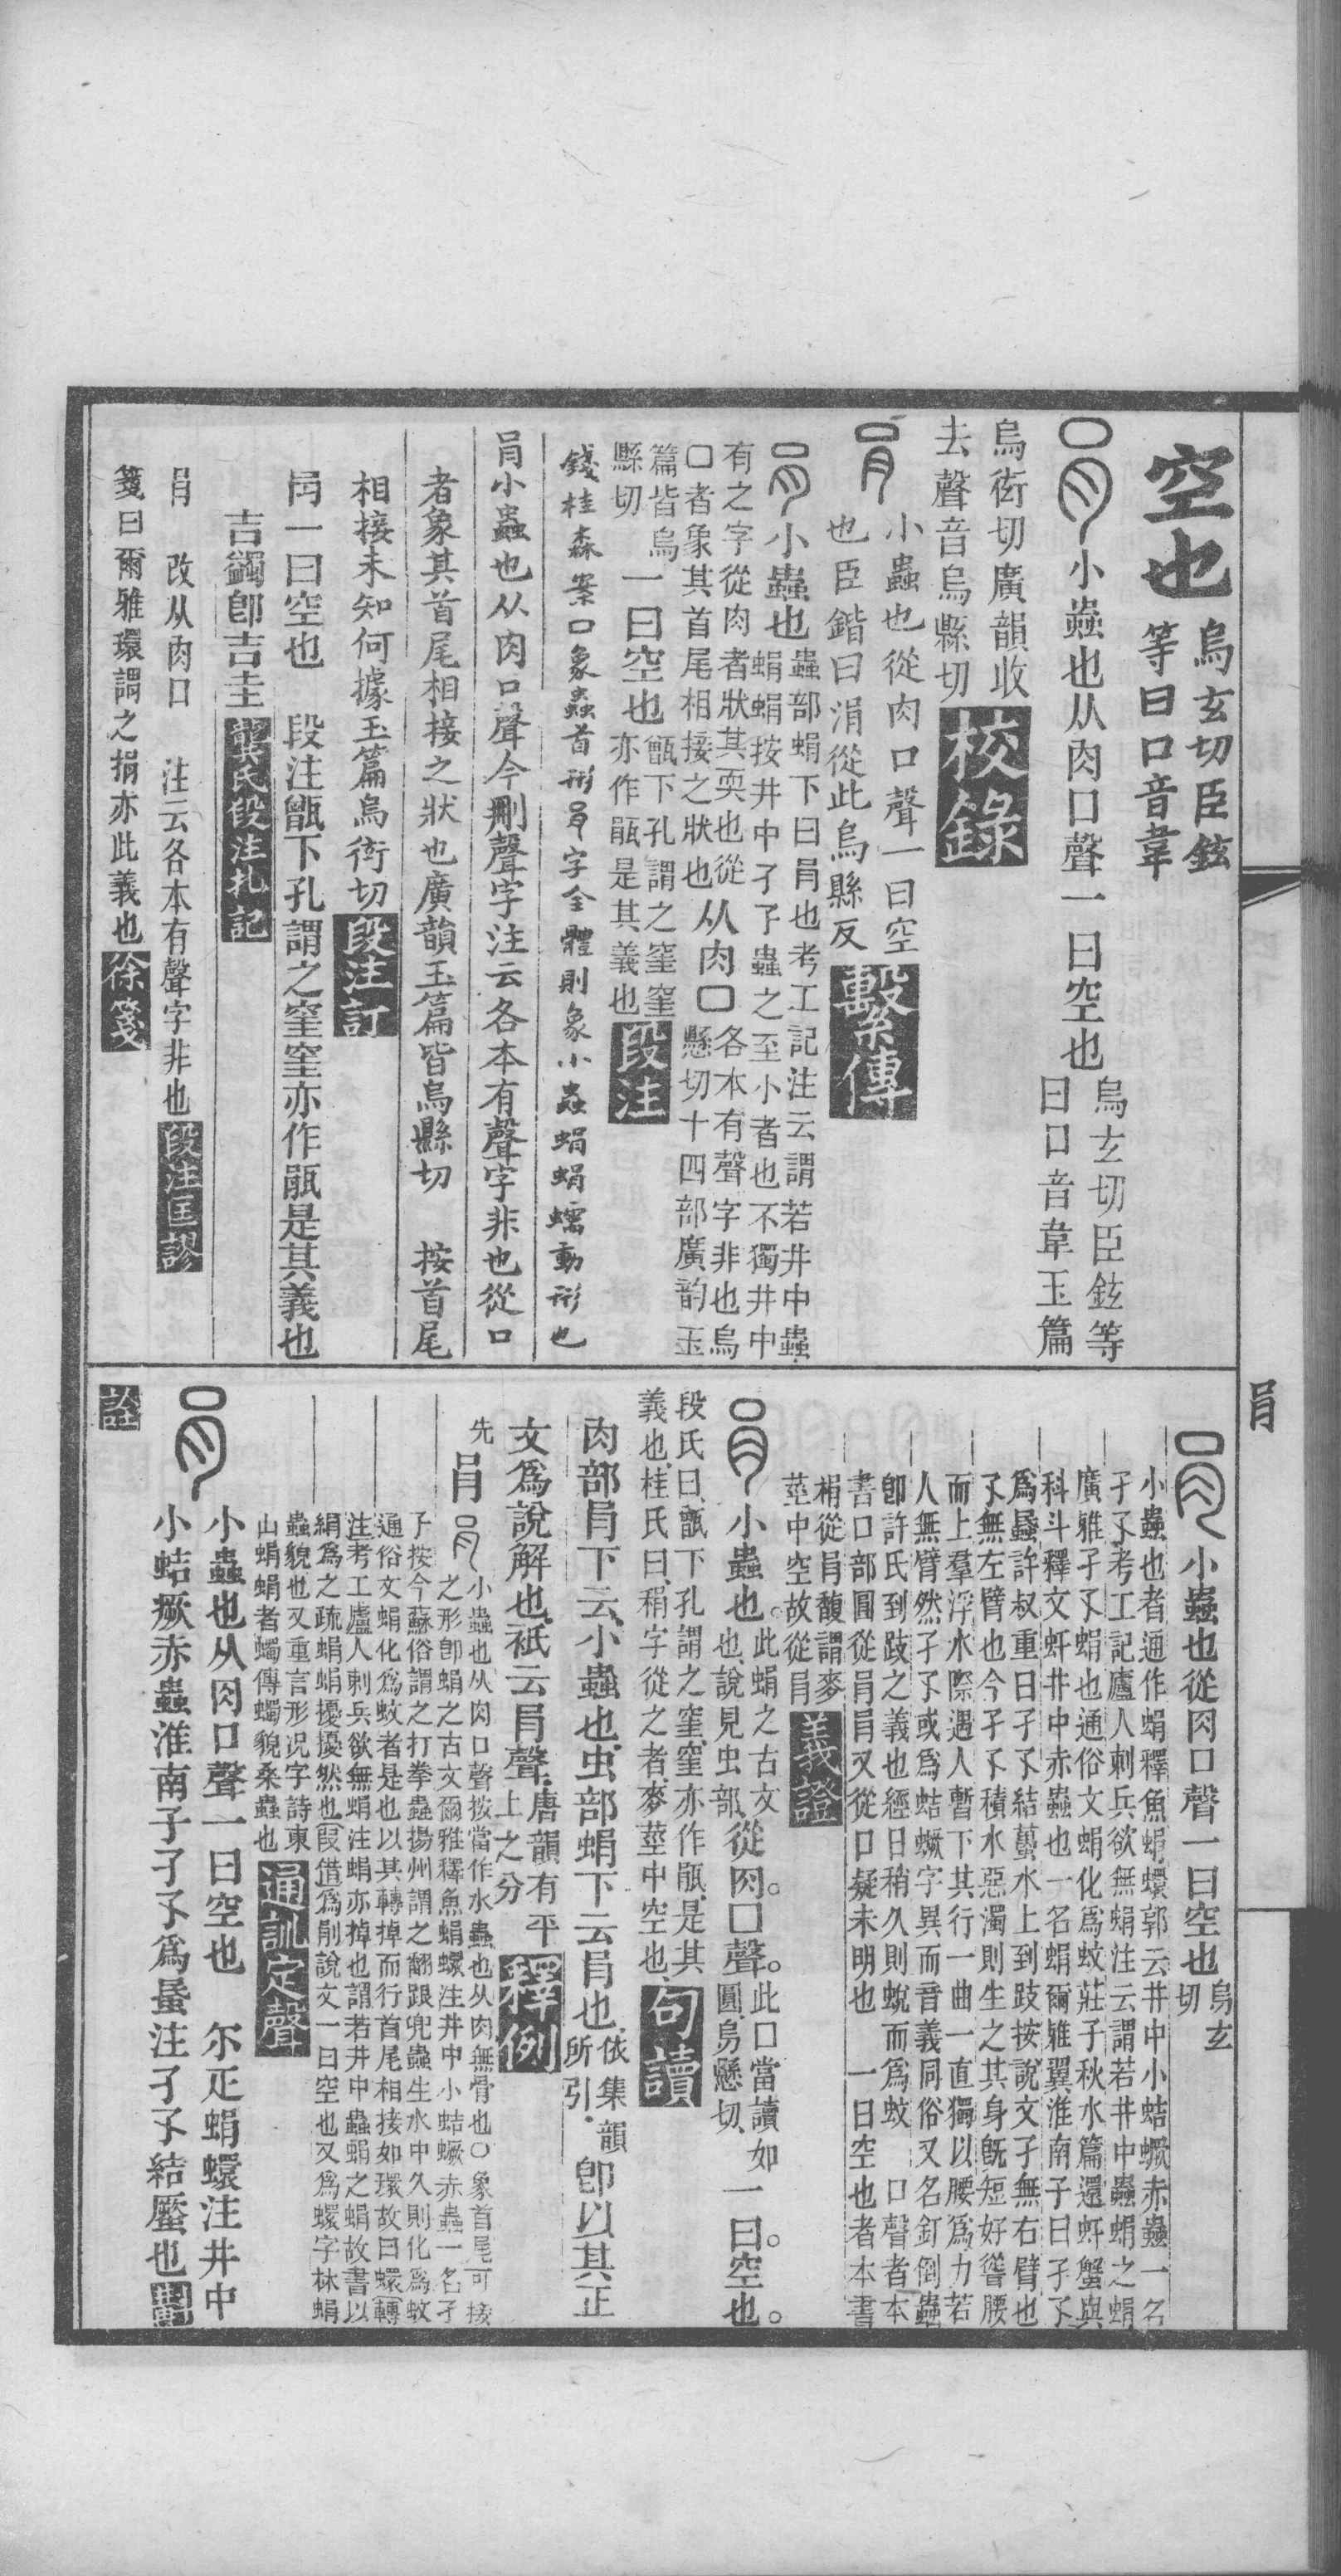 空也
烏玄切臣鉉
等曰口音韋
小蟲也从肉口聲一曰空也
烏玄切臣鉉等
曰口音韋玉篇
烏銜切廣韻收
去聲音烏縣切
校錄
小蟲也從肉口聲一曰空
也臣鍇曰涓從此烏縣反
繫傳
小蟲也
蟲部蜎下曰肙也考工記注云謂若井中蟲
蜎蜎按井中孑孑蟲之至小者也不獨井中
有之字從肉者狀其耎也從
口者象其首尾相接之狀也
从肉口
各本有聲字非也烏
懸切十四部廣韵玉
篇皆烏
縣切
一曰空也
甑下孔謂之窐窐
亦作甂是其義也
段注
錢桂森案口象蟲首形肙字全體則象小蟲蜎蜎蠕動形也
肙小蟲也从肉口聲今刪聲字注云各本有聲字非也從口
者象其首尾相接之狀也廣韻玉篇皆烏縣切 按首尾
相接未知何據玉篇烏銜切
段注訂
肙一曰空也 段注甑下孔謂之窐窐亦作甂是其義也
吉蠲卽吉圭
龔氏段注札記
肙 改从肉口 注云各本有聲字非也
段注匡謬
箋曰爾雅環謂之捐亦此義也
徐箋
肙
小蟲也從肉口聲一曰空也
烏玄
切
小蟲也者通作蜎釋魚蜎蠉郭云井中小蛣蟩赤蟲一名
孑孓考工記廬人刺兵欲無蜎注云謂若井中蟲蜎之蜎
廣雅孑孓蜎也通俗文蜎化爲蚊莊子秋水篇還虷蟹與
科斗釋文虷井中赤蟲也一名蜎爾雅翼淮南子曰孑孓
爲蟁許叔重曰孑孓結蠆水上到跂按說文孑無右臂也
孓無左臂也今孑孓積水惡濁則生之其身旣短好聳腰
而上羣浮水際遇人暫下其行一曲一直獨以腰爲力若
人無臂然孑孓或爲蛣蟩字異而音義同俗又名釘倒蟲
卽許氏到跂之義也經日稍久則蛻而爲蚊 口聲者本
書口部圓從肙肙又從口疑未明也 一曰空也者本書
䅌從肙馥謂麥
莖中空故從肙
義證
小蟲也。
此蜎之古文
也、說見虫部、
從肉。口聲。
此口當讀如
圓、烏懸切、
一曰空也。
段氏曰、甑下孔謂之窐、窐亦作甂、是其
義也、桂氏曰、䅌字從之者、麥莖中空也、
句讀
肉部肙下云、小蟲也、虫部蜎下云肙也、
依集韻
所引、
卽以其正
文爲說解也、祇云肙聲、
唐韻有平
上之分
釋例
先
肙
小蟲也从肉口聲按當作水蟲也从肉無骨也○象首尾可接
之形卽蜎之古文爾雅釋魚蜎蠉注井中小蛣蟩赤蟲一名孑
孓按今蘇俗謂之打拳蟲揚州謂之翻跟兜蟲生水中久則化爲蚊
通俗文蜎化爲蚊者是也以其轉掉而行首尾相接如環故曰蠉(轉
注)考工廬人刺兵欲無蜎注蜎亦掉也謂若井中蟲蜎之蜎故書以
絹爲之疏蜎蜎擾擾然也(叚借)爲削說文一曰空也又爲蠉字林蜎
蟲貌也又重言形况字詩東
山蜎蜎者蠋傳蠋貌桑蟲也
通訓定聲
小蟲也从肉口聲一曰空也 尓疋蜎蠉注井中
小蛣蟩赤蟲淮南子孑孓爲蟁注孑孓結蠆也
斠
詮